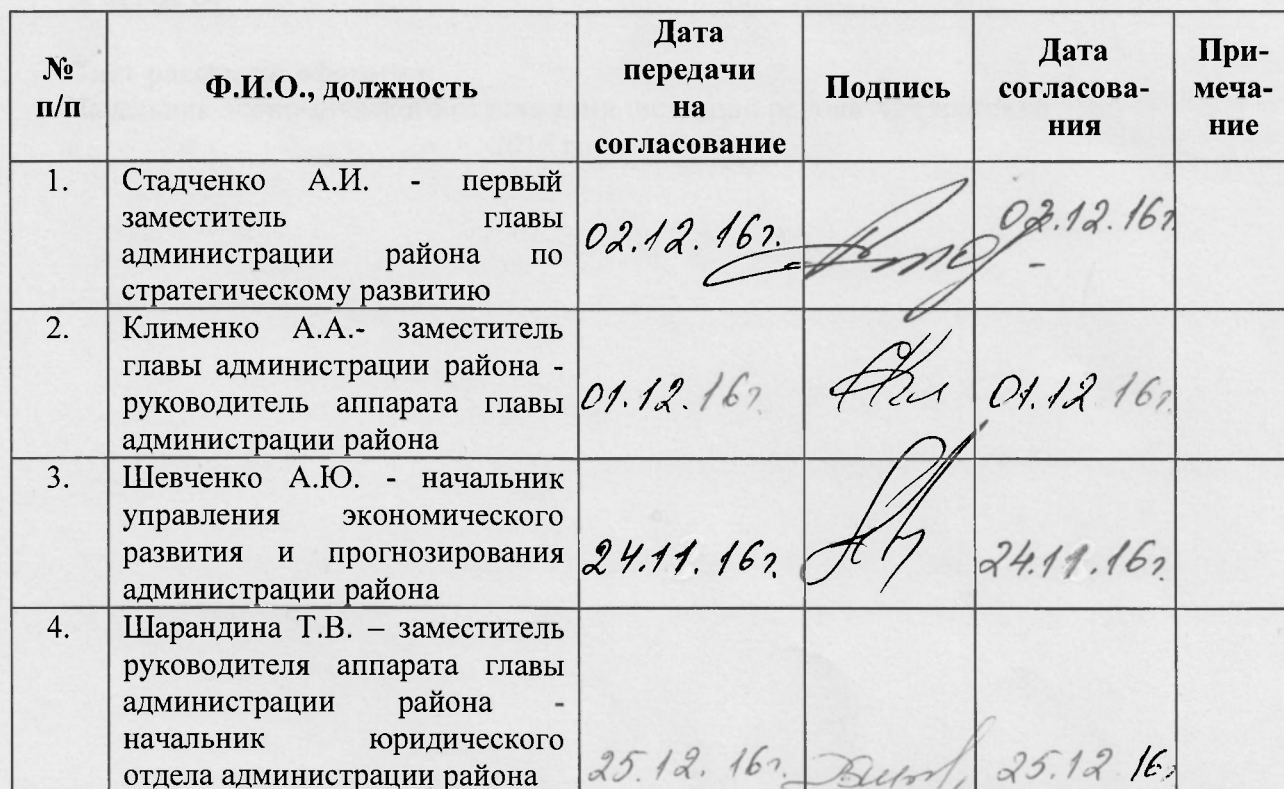 № п/п
Ф.И.О., должность
Дата передачи на согласование
Подпись
Дата согласова-ния
При-меча-ние
1.
Стадченко А.И. - первый
заместитель главы
администрации района по
стратегическому развитию
02.12.16г.
02.12.16г
2.
Клименко А.А.- заместитель
главы администрации района -
руководитель аппарата главы
администрации района
01.12.16г
01.12 16г
3.
Шевченко А.Ю. - начальник
управления экономического
развития и прогнозирования
администрации района
24.11.16г.
24.11.16г
4.
Шарандина Т.В. – заместитель
руководителя аппарата главы
администрации района -
начальник юридического
отдела администрации района
25.12.16г.
25.12 16г